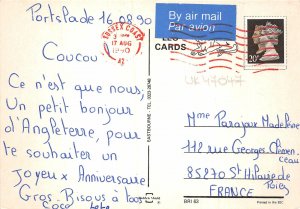 Portslade 16.08.90
By air mail
Par avion
SUSSEX COAST
17 AUG
1990
LEO
CARDS
20
Coucou.
Ce n'est que nous,
Un petit bonjour
d'Angleterre, pour
te souhaiter un
Joyeux Anniversaire
Gros. Bisous à tous
Coco bebe
EASTBOURNE - TEL:
UK47047
Mme Parajoux Madeleine
118 rue Georges Clemen
ceau
85270 St Hilaire de
Riez
FRANCE
BRI 63
Printed in the EEC